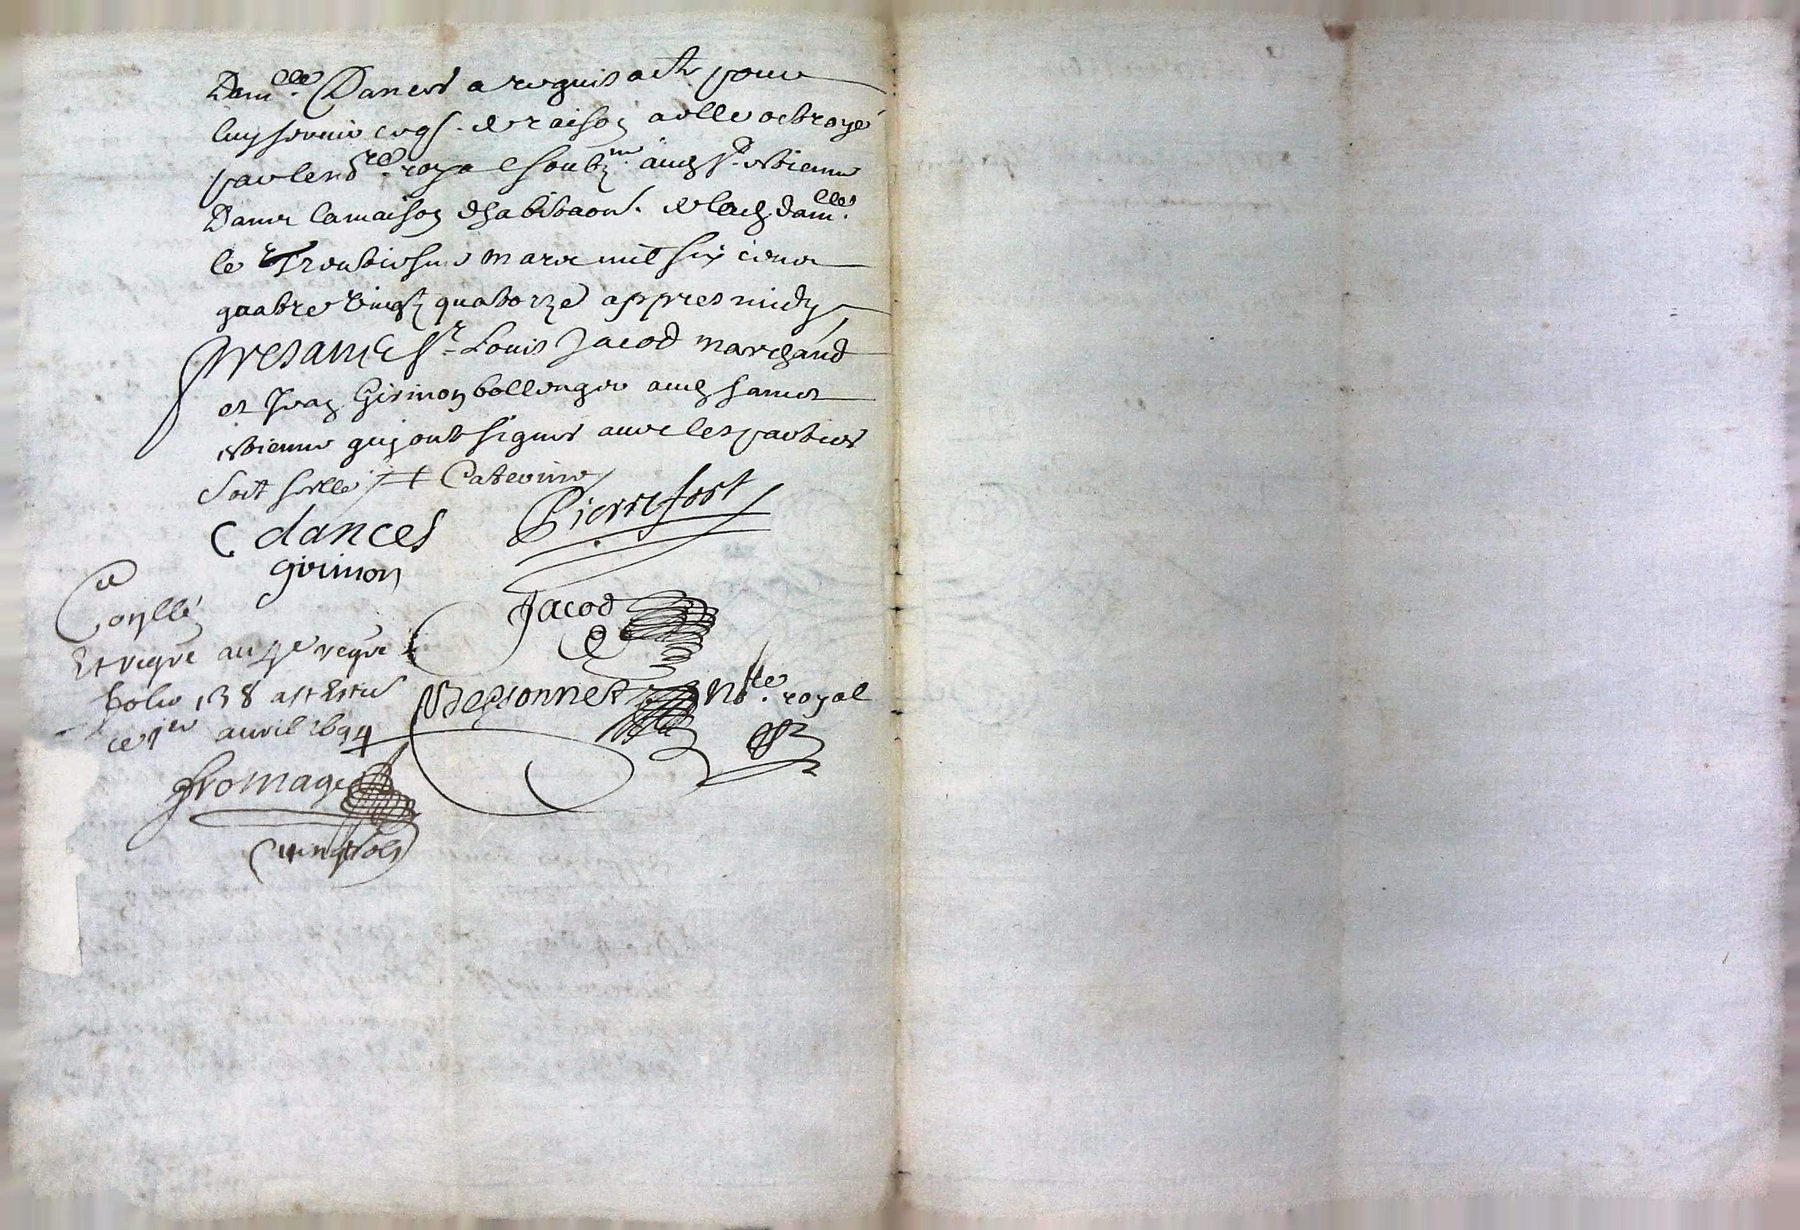 Dam.lle Dances a requis acte pour
luy servir de raison a elle octroyé
par le no.re royal soubz.né aud St. estienne
Dans la maison d'habitaon. de lad. dam.lle
le Trentiesme mars mil six cens
quatre vingtz quatorze appres midy
Presans Sr. Louis Jacod marchand
et Jean Girinon bollenger aud sainct
estienne qui ont signés avec les parties
Soit scellé ≠ Caterine
C dances Pierrefort
girinon
Jacod
Coñllé
Et regre au 4e regre
folio 138 a st estne
ce 1er avril 1694
Bessonnet nore. royal
fromage